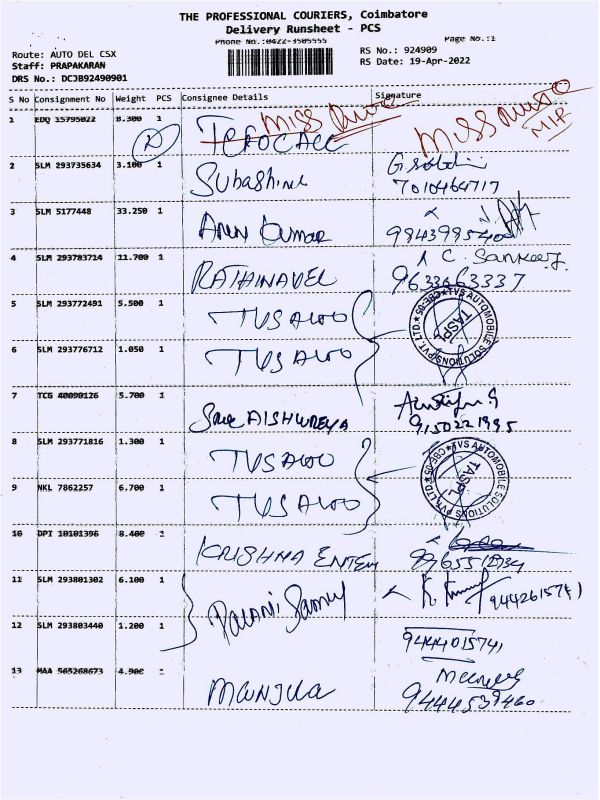 THE PROFESSIONAL COURIERS, Coimbatore
Delivery Runsheet - PCS
Phone No.:0422-3505555 Page No.:1
Route: AUTO DEL CSX RS No.: 924909
Staff: PRAPAKARAN RS Date: 19-Apr-2022
DRS No.: DCJB92490901
S No Consignment No Weight PCS Consignee Details Signature
1 EDQ 15795022 8.300 1 MISS MISS
2 SLM 293735634 3.100 1 Subashini
7010464717
3 SLM 5177448 33.250 1 Arun Kumar
4 SLM 293783714 11.700 1 RATHINAVEL C. Sankar
9633663337
5 SLM 293772491 5.500 1 TVS Auto
TVS AUTOMOBILE SOLUTIONS PVT. LTD. CBE-05
TASPL
6 SLM 293776712 1.050 1 TVS Auto
7 TCG 40090126 5.700 1 Sree AISHWREYA
9150221995
8 SLM 293771816 1.300 1 TVS Auto
TVS AUTOMOBILE SOLUTIONS PVT. LTD. CBE-05
TASPL
9 NKL 7862257 6.700 1 TVS Auto
10 DPI 10101396 8.400 1 KRISHNA ENTER
11 SLM 293801302 6.100 1 Palani Samy 9442615741
12 SLM 293803440 1.200 1
9444015741
13 MAA 565268673 4.900 1 Manjula
9444539460